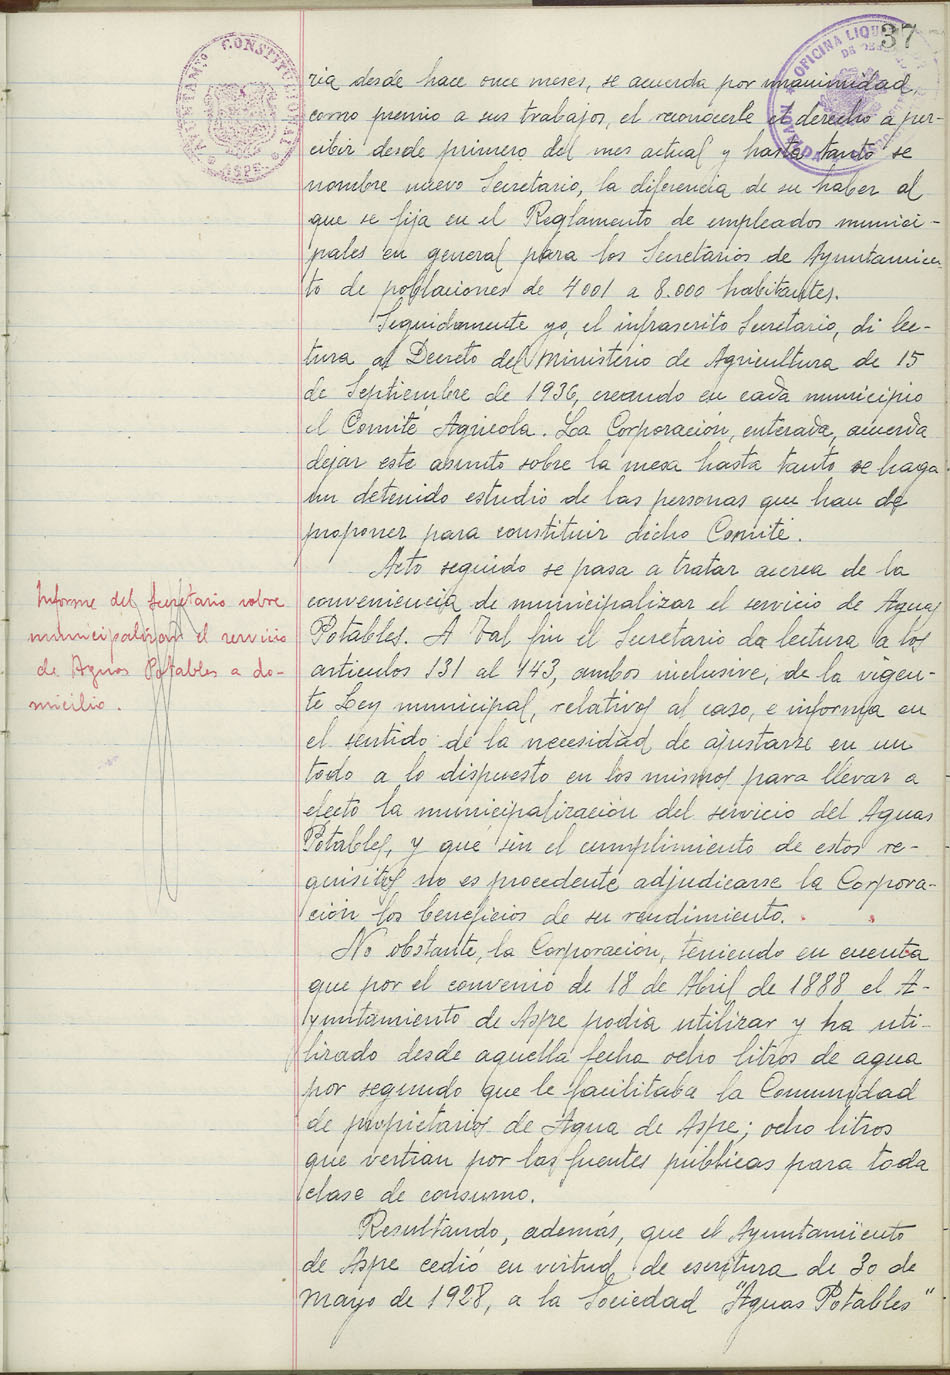 37
AYUNTAM.TO CONSTITUCIONAL
ASPE
OFICINA LIQUI
NOVELDA
ria desde hace once meses, se acuerda por unanimidad,
como premio a sus trabajos, el reconocerle el derecho a per-
cibir desde primero del mes actual y hasta tanto se
nombre nuevo Secretario, la diferencia de su haber al
que se fija en el Reglamento de empleados munici-
pales en general para los Secretarios de Ayuntamien
to de poblaciones de 4001 a 8.000 habitantes.
Seguidamente yo, el infrascrito Secretario, di lec-
tura al Decreto del Ministerio de Agricultura de 15
de Septiembre de 1936, creando en cada municipio
el Comité Agricola. La Corporación, enterada, acuerda
dejar este asunto sobre la mesa hasta tanto se haga
un detenido estudio de las personas que han de
proponer para constituir dicho Comité.
Acto seguido se pasa a tratar acerca de la
conveniencia de municipalizar el servicio de Aguas
Potables. A tal fin el Secretario da lectura a los
articulos 131 al 143, ambos inclusive, de la vigen-
te Ley municipal, relativos al caso, e informa en
el sentido de la necesidad de ajustarse en un
todo a lo dispuesto en los mismos para llevar a
efecto la municipalización del servicio del Aguas
Potables, y que sin el cumplimiento de estos re-
quisitos no es procedente adjudicarse la Corpora-
ción los beneficios de su rendimiento.
No obstante, la Corporación, teniendo en cuenta
que por el convenio de 18 de Abril de 1888 el A-
yuntamiento de Aspe podia utilizar y ha uti-
lizado desde aquella fecha ocho litros de agua
por segundo que le facilitaba la Comunidad
de propietarios de Agua de Aspe; ocho litros
que vertian por las fuentes públicas para toda
clase de consumo.
Resultando, además, que el Ayuntamiento
de Aspe cedió en virtud de escritura de 30 de
Mayo de 1928, a la Sociedad "Aguas Potables"
Informe del Secretario sobre
municipalizar el servicio
de Aguas Potables a do-
micilio.